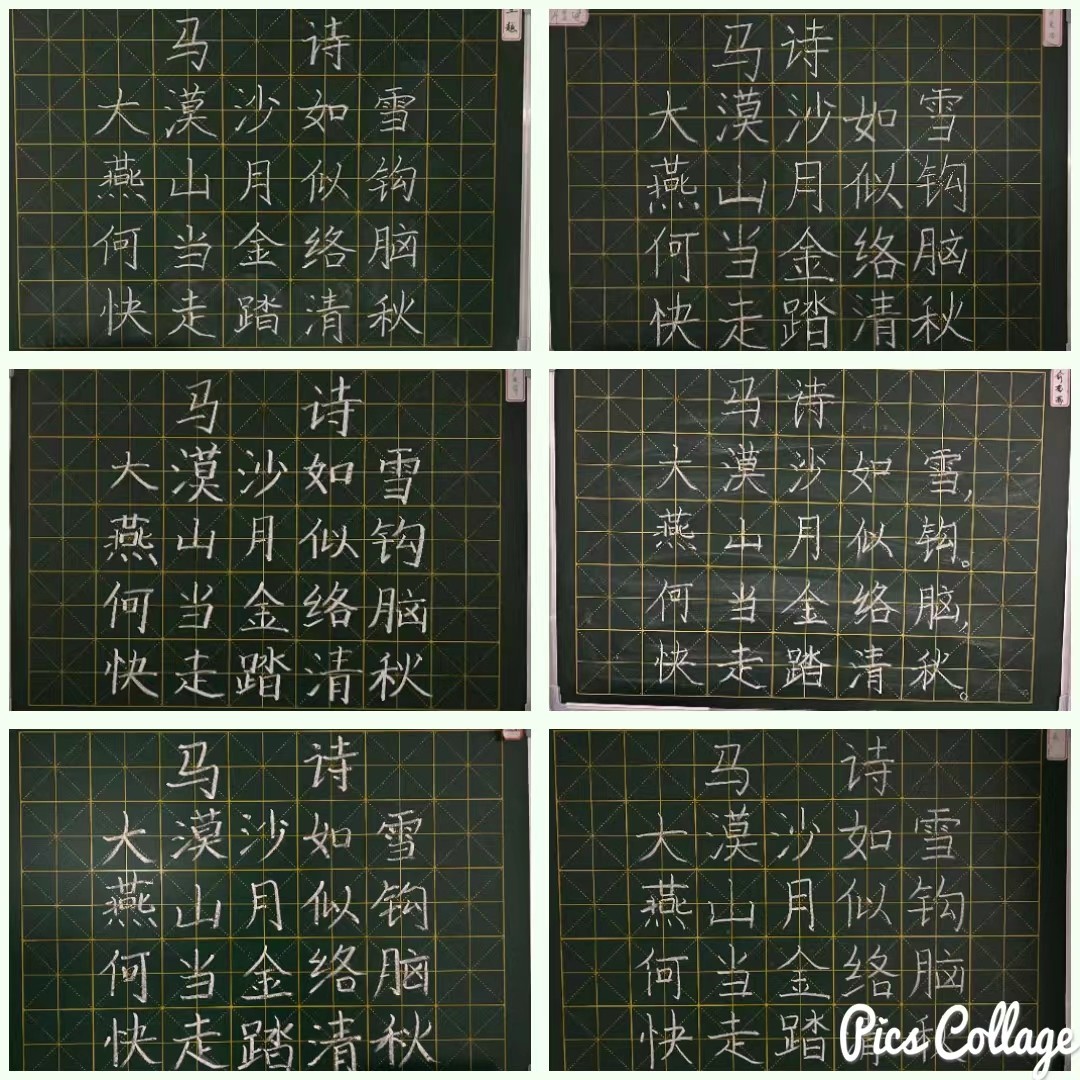 马诗
大漠沙如雪
燕山月似钩
何当金络脑
快走踏清秋
马诗
大漠沙如雪
燕山月似钩
何当金络脑
快走踏清秋
马诗
大漠沙如雪
燕山月似钩
何当金络脑
快走踏清秋
马诗
大漠沙如雪，
燕山月似钩。
何当金络脑，
快走踏清秋。
马诗
大漠沙如雪
燕山月似钩
何当金络脑
快走踏清秋
马诗
大漠沙如雪
燕山月似钩
何当金络脑
快走踏
Pics Collage